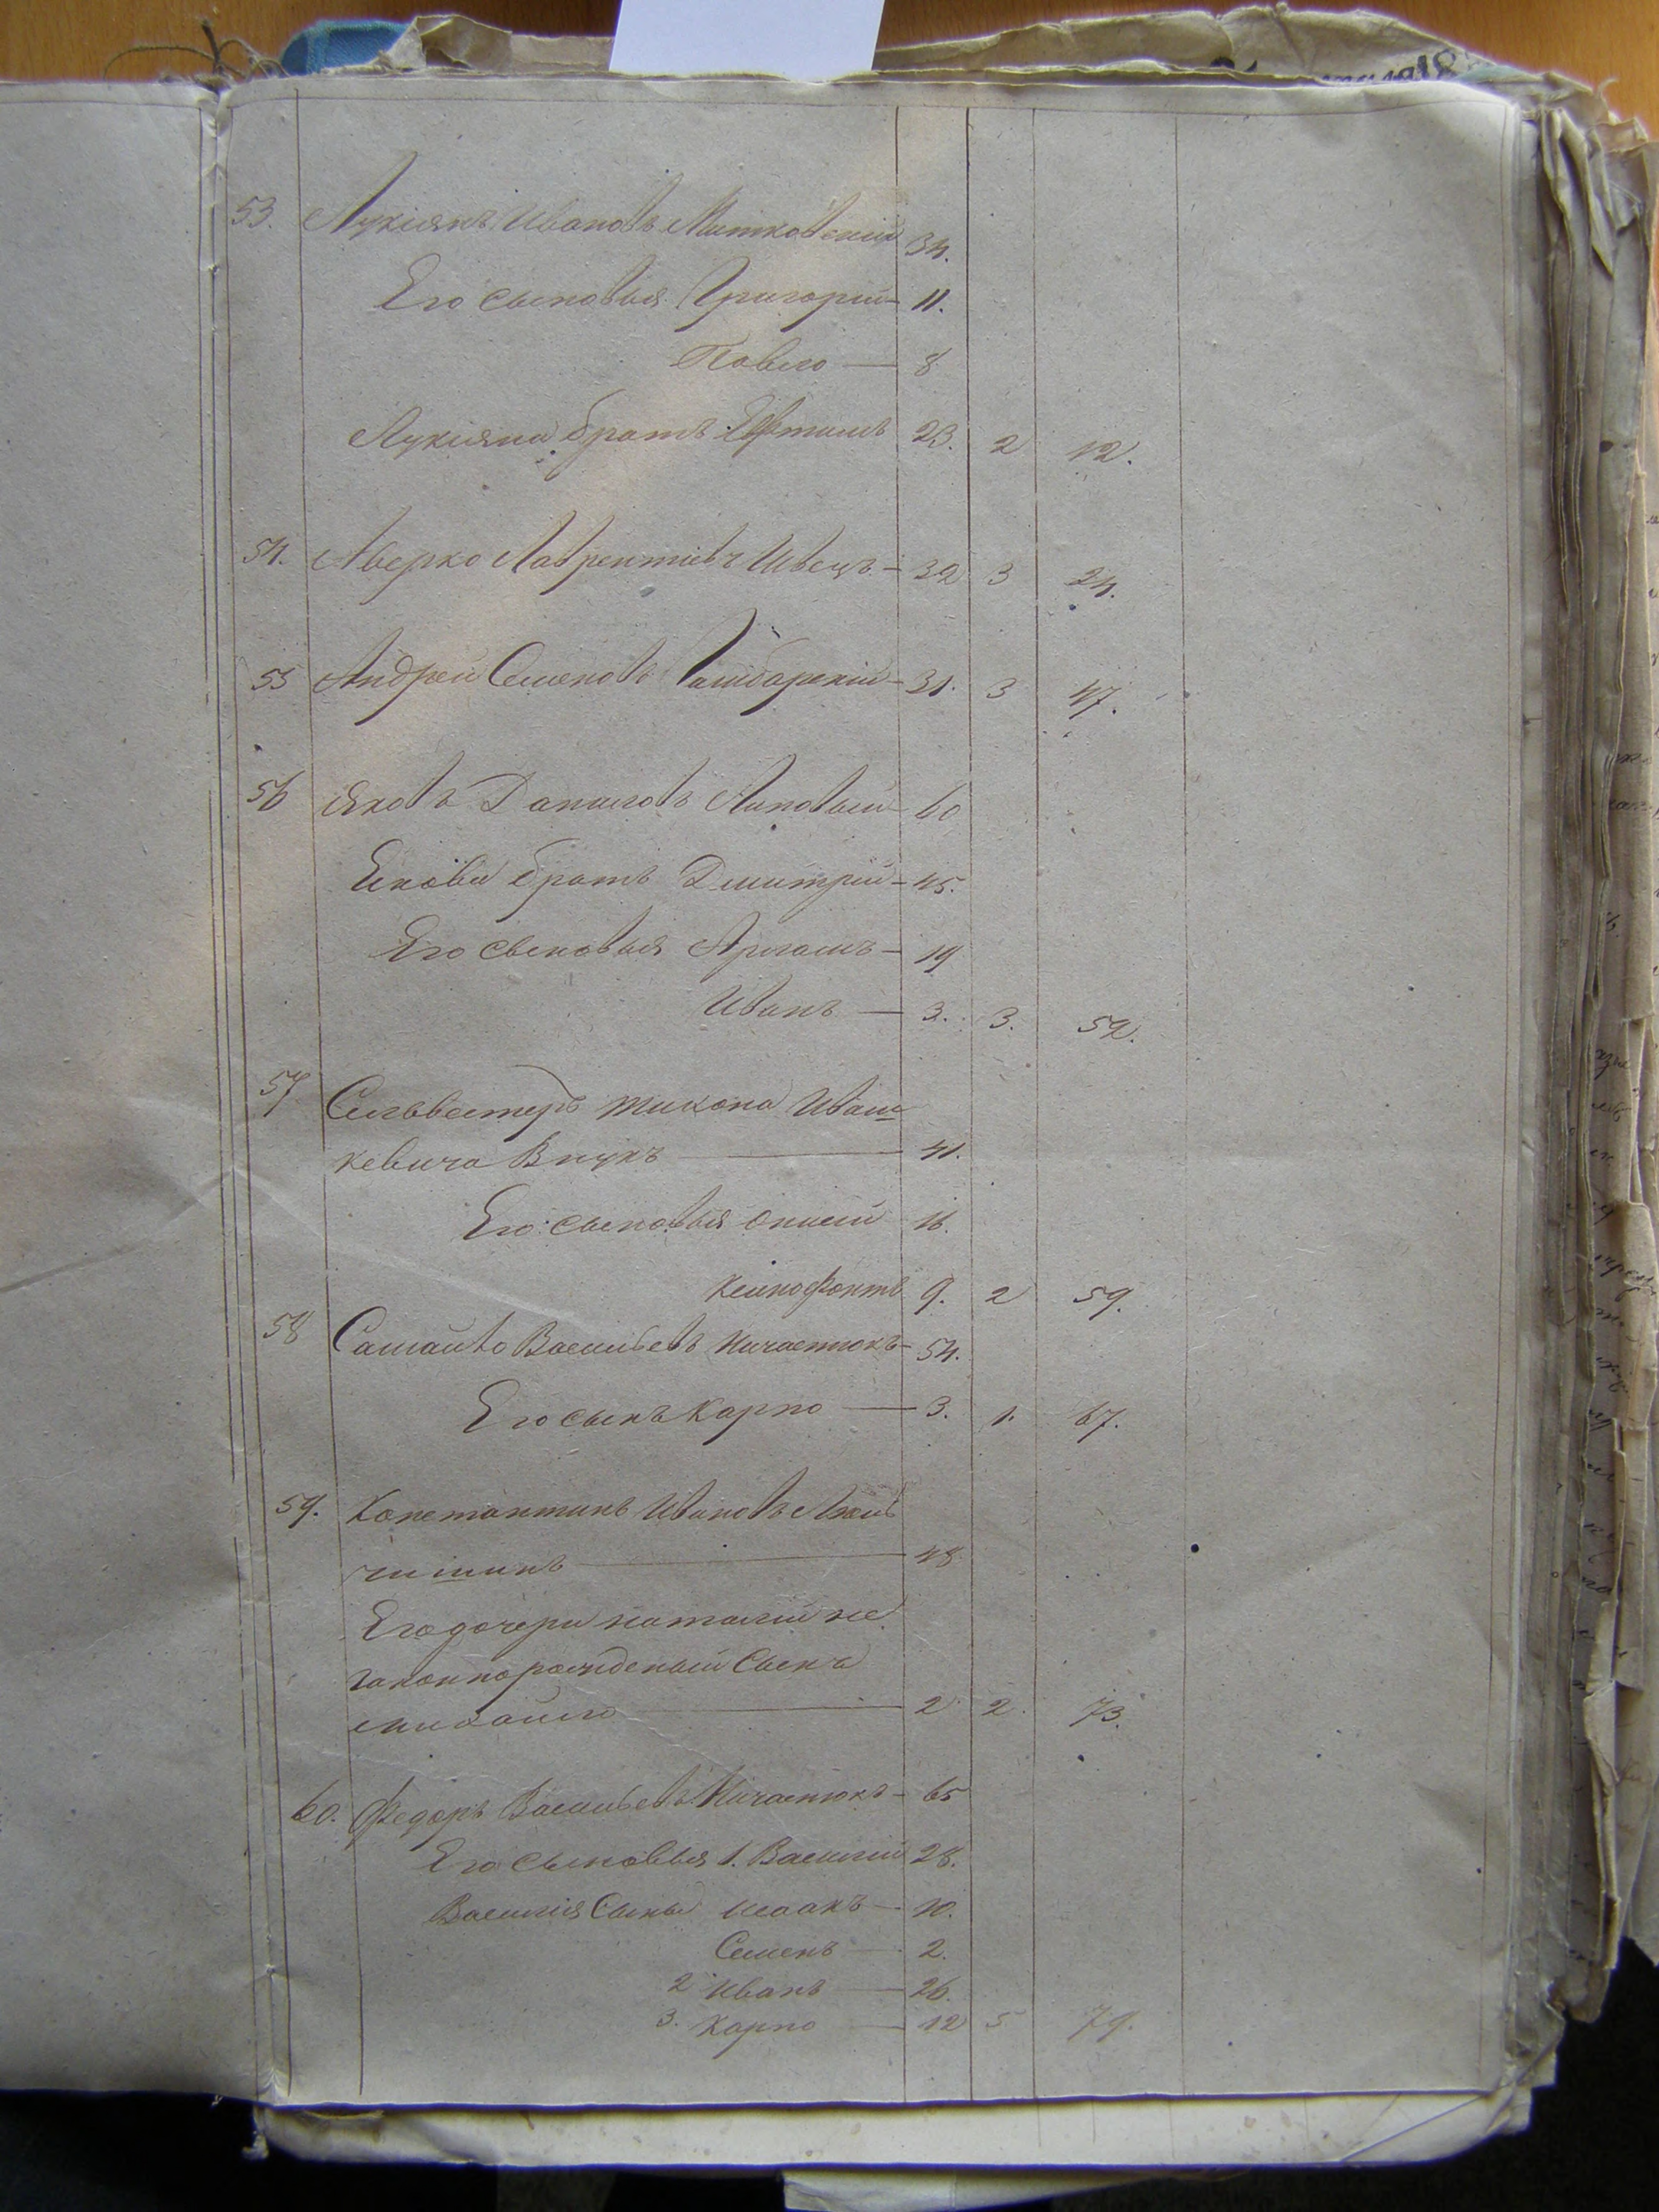 53. Лукіянъ Ивановъ Митковскій 34.
Его сыновья Григорій — 11.
Павло — 8
Лукіяна братъ 23. 2 12.
54. Аверко Лаврентіевъ Швецъ — 32 3 24.
55 Андрей Семеновъ — 31. 3 47.
56 Яковъ Даниловъ Липовый — 60
братъ Дмитрій — 45.
Его сыновья — 19
Иванъ — 3. 3. 52.
57 Сильвестеръ тихона Иваш=
кевича Внукъ — 41.
Его сыновья 16.
Ксинофонтъ 9. 2 59.
58 Самойло Васильевъ Ничаенюкъ — 54.
Его сынъ Карпо — 3. 1. 67.
59. Константинъ Ивановъ
чишинъ — 48
Его дочери наталіи не
законнорожденый Сынъ
михайло — 2 2. 73.
60. Федоръ Васильевъ Ничаенюкъ — 65
Его сыновья 1. Василій 28.
Василія Сыны Исаакъ — 10.
Семенъ — 2.
2 Иванъ — 26.
3. Карпо — 12 5 79.